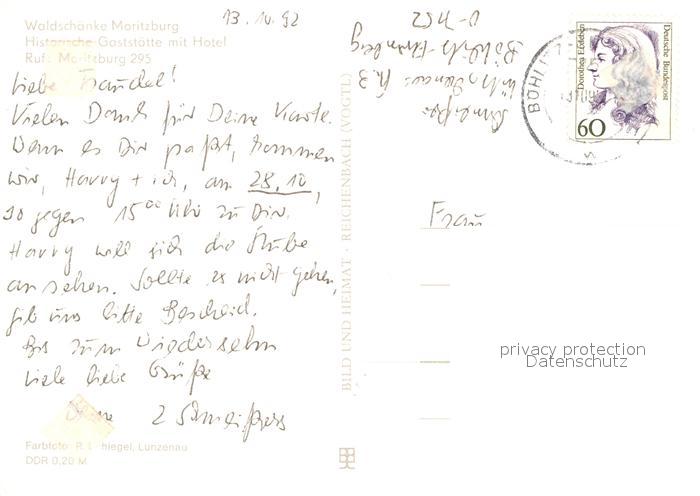 Waldschänke Moritzburg
Historische Gaststätte mit Hotel
Ruf: Moritzburg 295
13.10.92
Liebe Traudel!
Vielen Dank für Deine Karte.
Wenn es Dir paßt, kommen
wir, Harry + ich, am 28.10,
so gegen 15 00 Uhr zu Dir.
Harry will sich die Stube
ansehen. Sollte es nicht gehen,
gib uns bitte Bescheid.
Bis zum Wiedersehn
viele liebe Grüße
Deine 2 Schneiders
Farbfoto: R. hiegel, Lunzenau
DDR 0,20 M
BILD UND HEIMAT · REICHENBACH (VOGTL)
Böhlitz-Ehrenberg
Frau
BÖHLIT
Dorothea Erxleben
Deutsche Bundespost
60
privacy protection
Datenschutz